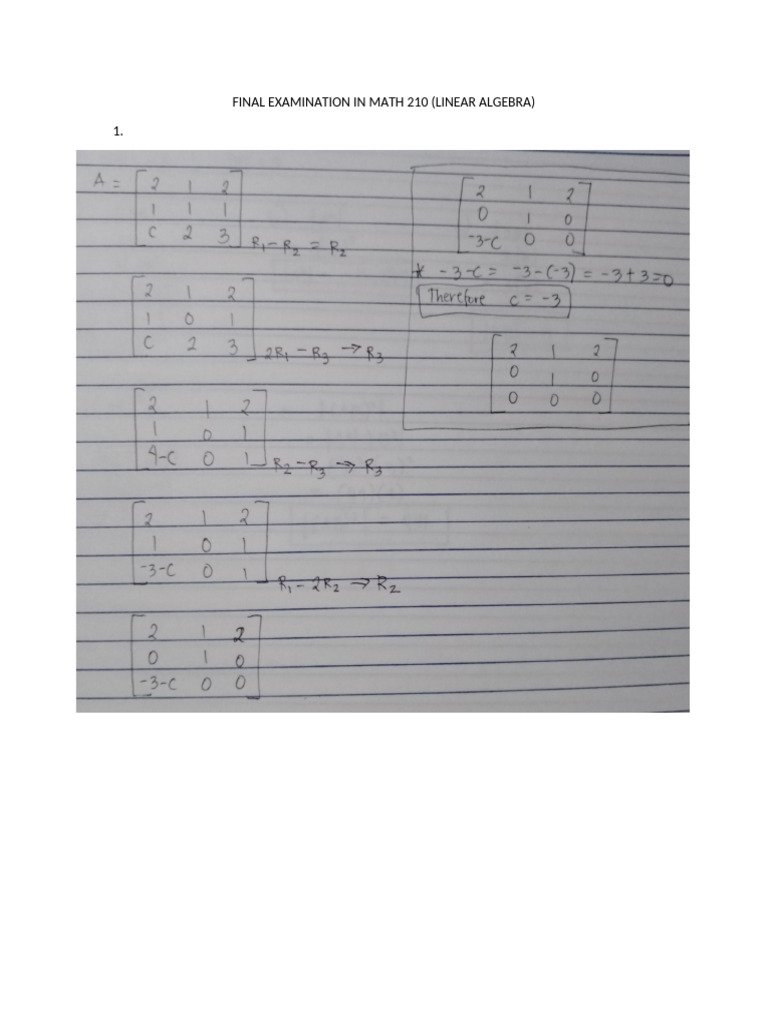 FINAL EXAMINATION IN MATH 210 (LINEAR ALGEBRA)
1.
A = 2 1 2
1 1 1
C 2 3
R1 - R2 = R2
2 1 2
1 0 1
C 2 3
2R1 - R3 → R3
2 1 2
1 0 1
4-C 0 1
R2 - R3 → R3
2 1 2
1 0 1
-3-C 0 1
R1 - 2R2 → R2
2 1 2
0 1 0
-3-C 0 0
2 1 2
0 1 0
-3-C 0 0
* -3-C = -3-(-3) = -3+3=0
Therefore C = -3
2 1 2
0 1 0
0 0 0